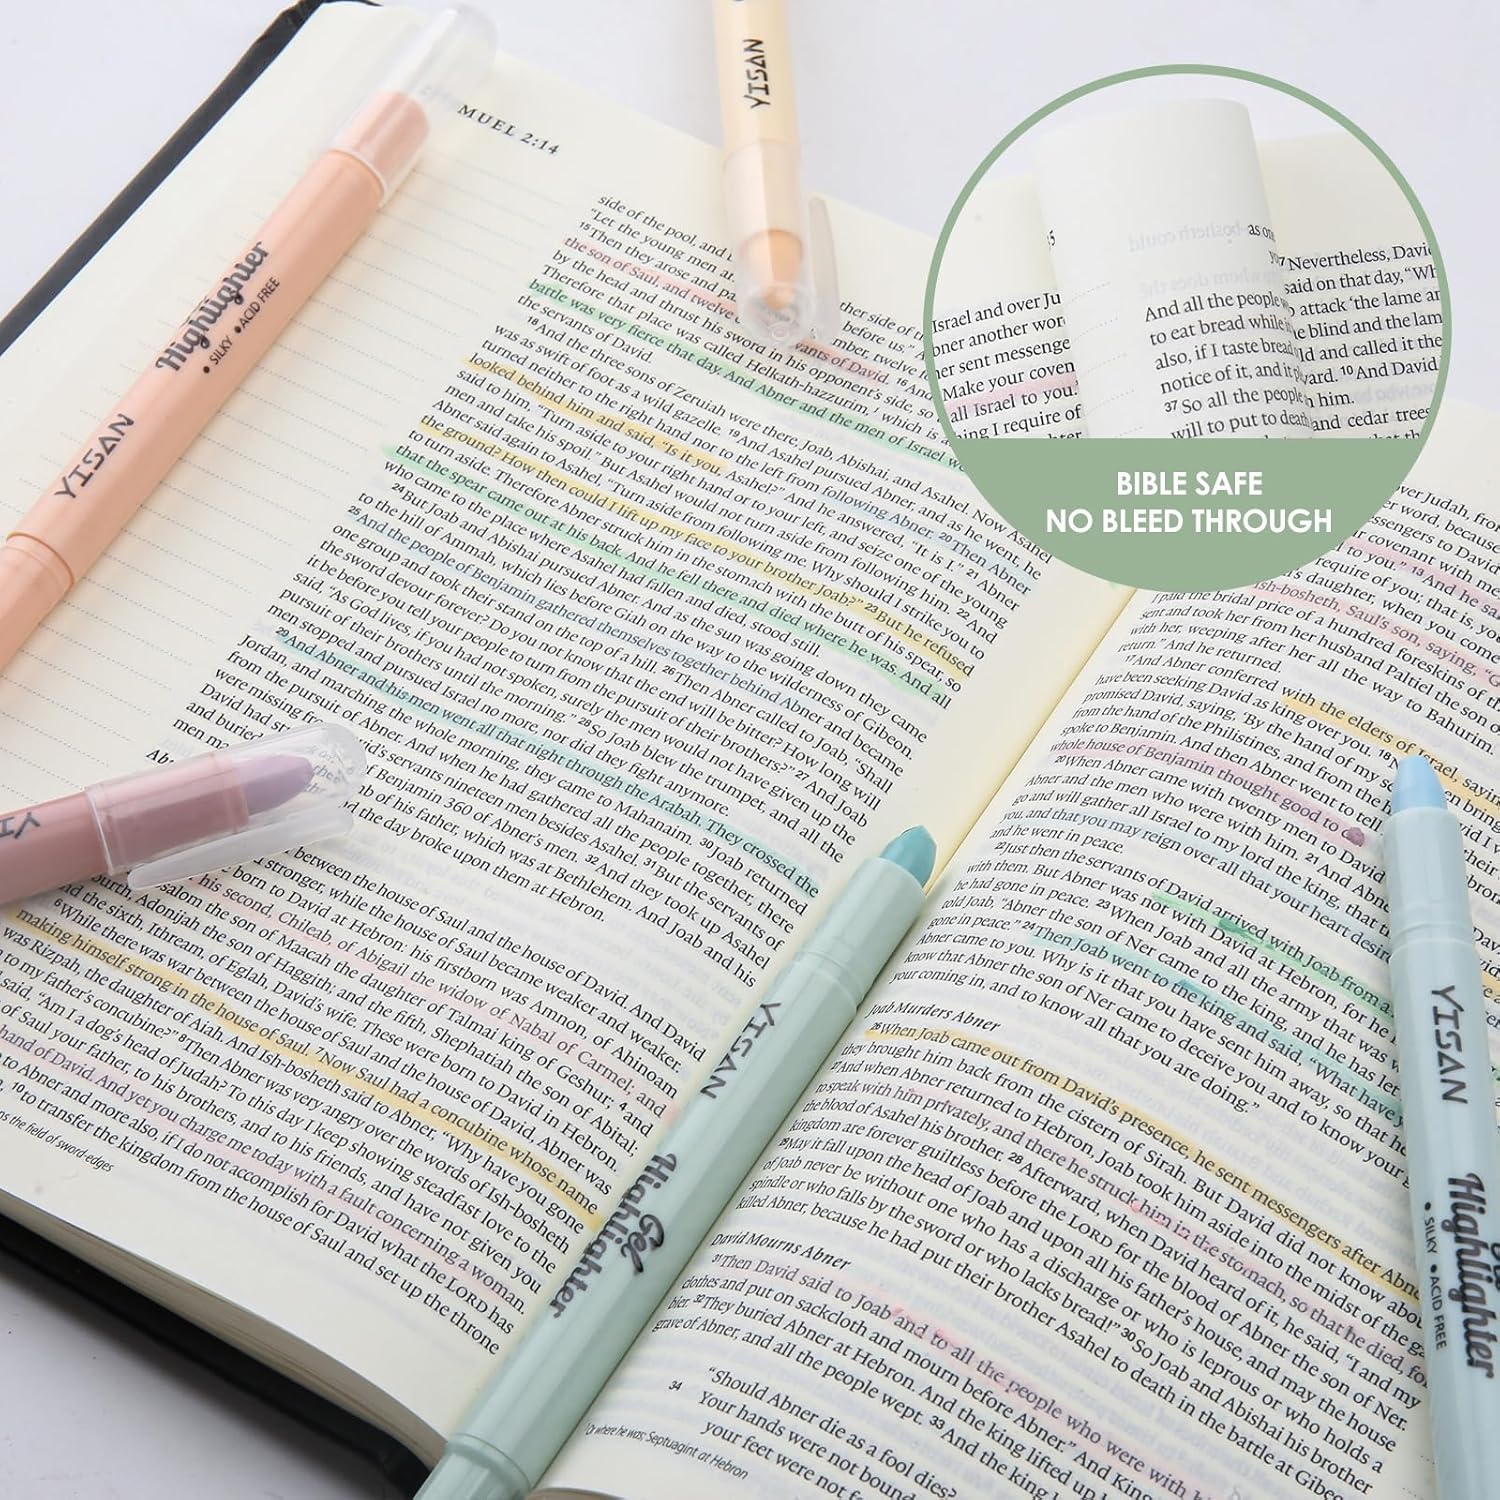 MUEL 2:14
side of the pool, and
"Let the young men ar
15 Then they arose and pa
the son of Saul, and twelve
by the head and thrust his sword in his opponent's side, so
Therefore that place was called Helkath-hazzurim, which is a
battle was very fierce that day. And Abner and the men of Israel we
the servants of David.
18 And the three sons of Zeruiah were there, Joab, Abishai, and Asahel. Now Asahel
was as swift of foot as a wild gazelle. 19 And Asahel pursued Abner, and as he went, he
turned neither to the right hand nor to the left from following Abner. 20 Then Abner
looked behind him and said, "Is it you, Asahel?" And he answered, "It is I." 21 Abner
said to him, "Turn aside to your right hand or to your left, and seize one of the young
men and take his spoil." But Asahel would not turn aside from following him. 22 And
Abner said again to Asahel, "Turn aside from following me. Why should I strike you to
the ground? How then could I lift up my face to your brother Joab?" 23 But he refused
to turn aside. Therefore Abner struck him in the stomach with the butt of his spear, so
that the spear came out at his back. And he fell there and died where he was. And all
who came to the place where Asahel had fallen and died, stood still.
24 But Joab and Abishai pursued Abner. And as the sun was going down they came
to the hill of Ammah, which lies before Giah on the way to the wilderness of Gibeon.
25 And the people of Benjamin gathered themselves together behind Abner and became
one group and took their stand on the top of a hill. 26 Then Abner called to Joab, "Shall
the sword devour forever? Do you not know that the end will be bitter? How long will
it be before you tell your people to turn from the pursuit of their brothers?" 27 And Joab
said, "As God lives, if you had not spoken, surely the men would not have given up the
pursuit of their brothers until the morning." 28 So Joab blew the trumpet, and all the
men stopped and pursued Israel no more, nor did they fight anymore.
29 And Abner and his men went all that night through the Arabah. They crossed the
Jordan, and marching the whole morning, they came to Mahanaim. 30 Joab returned
from the pursuit of Abner. And when he had gathered all the people together, there
were missing from David's servants nineteen men besides Asahel. 31 But the servants of
David had st of Benjamin 360 of Abner's men. 32 And they took up Asahel
and buried of his father, which was at Bethlehem. And Joab and his
men ma the day broke upon them at Hebron.
between the house of Saul and the house of David. And David
stronger, while the house of Saul became weaker and weaker.
born to David at Hebron: his firstborn was Amnon, of Ahinoam
his second, Chileab, of Abigail the widow of Nabal of Carmel; and
salom the son of Maacah the daughter of Talmai king of Geshur; 4 and
ourth, Adonijah the son of Haggith; and the fifth, Shephatiah the son of Abital;
the sixth, Ithream, of Eglah, David's wife. These were born to David in Hebron.
6 While there was war between the house of Saul and the house of David, Abner was
making himself strong in the house of Saul. 7 Now Saul had a concubine whose name
was Rizpah, the daughter of Aiah. And Ish-bosheth said to Abner, "Why have you gone
to my father's concubine?" 8 Then Abner was very angry over the words of Ish-bosheth
said, "Am I a dog's head of Judah? To this day I keep showing steadfast love to the
of Saul your father, to his brothers, and to his friends, and have not given you
hand of David. And yet you charge me today with a fault concerning a woman.
to Abner and more also, if I do not accomplish for David what the LORD has
10 to transfer the kingdom from the house of Saul and set up the throne
the field of sword-edges
YISAN
Highlighter
• SILKY • ACID FREE
YISAN
YISAN
YISAN
Gel
Highlighter
YISAN
Highlighter
• SILKY • ACID FREE
Israel and over Ju
bner another wor
her sent messenge
Make your coven
all Israel to you."
hing I require of
as on
And all the people
to eat bread while
also, if I taste bread
notice of it, and it
37 So all the people
will to put to death
7 Nevertheless, Davi
said on that day, "Wh
attack 'the lame an
e blind and the lam
ld and called it the
ward. 10 And David
h him.
and cedar trees
BIBLE SAFE
NO BLEED THROUGH
I paid the bridal price of a hundred foreskins of th
sent and took her from her husband Paltiel the son o
with her, weeping after her all the way to Bahurim.
return." And he returned.
17 And Abner conferred with the elders of Israel, sayin
have been seeking David as king over you. 18
promised David, saying, 'By the hand of my
from the hand of the Philistines, and from the
spoke to Benjamin. And then Abner went to tell
whole house of Benjamin thought good to
20 When Abner came with twenty men to David
Abner and the men who were with him. 21 And Abn
go and will gather all Israel to my lord the king, that
you, and that you may reign over all that your heart desir
and he went in peace.
22 Just then the servants of David arrived with Joab from a
with them. But Abner was not with David at Hebron, for he
he had gone in peace. 23 When Joab and all the army that was
told Joab, "Abner the son of Ner came to the king, and he has let
gone in peace." 24 Then Joab went to the king and said, "What have
Abner came to you. Why is it that you have sent him away, so that he
know that Abner the son of Ner came to deceive you and to know your
your coming in, and to know all that you are doing."
Joab Murders Abner
26 When Joab came out from David's presence, he sent messengers after Abne
they brought him back from the cistern of Sirah. But David did not know abou
27 And when Abner returned to Hebron, Joab took him aside into the midst of the ga
to speak with him privately, and there he struck him in the stomach, so that he died, fo
the blood of Asahel his brother. 28 Afterward, when David heard of it, he said, "I and my
kingdom are forever guiltless before the LORD for the blood of Abner the son of Ner.
29 May it fall upon the head of Joab and upon all his father's house, and may the house
of Joab never be without one who has a discharge or who is leprous or who holds a
spindle or who falls by the sword or who lacks bread!" 30 So Joab and Abishai his brother
killed Abner, because he had put their brother Asahel to death in the battle at Gibeo
David Mourns Abner
31 Then David said to Joab and to all the people who were with hi
clothes and put on sackcloth and mourn before Abner." And King
bier. 32 They buried Abner at Hebron. And the king lifted up
grave of Abner, and all the people wept. 33 And the king
"Should Abner die as a fool dies?
34 Your hands were not bound
your feet were not
Or where he was; Septuagint at Hebron